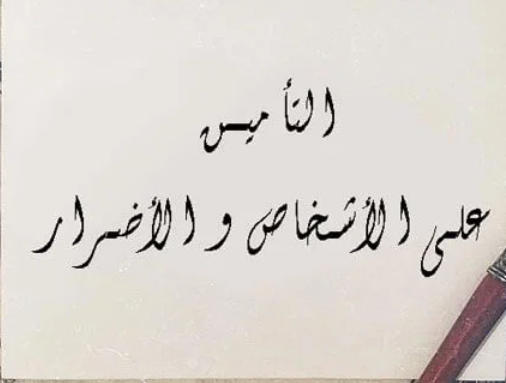 التأمين
على الأشخاص و الأضرار